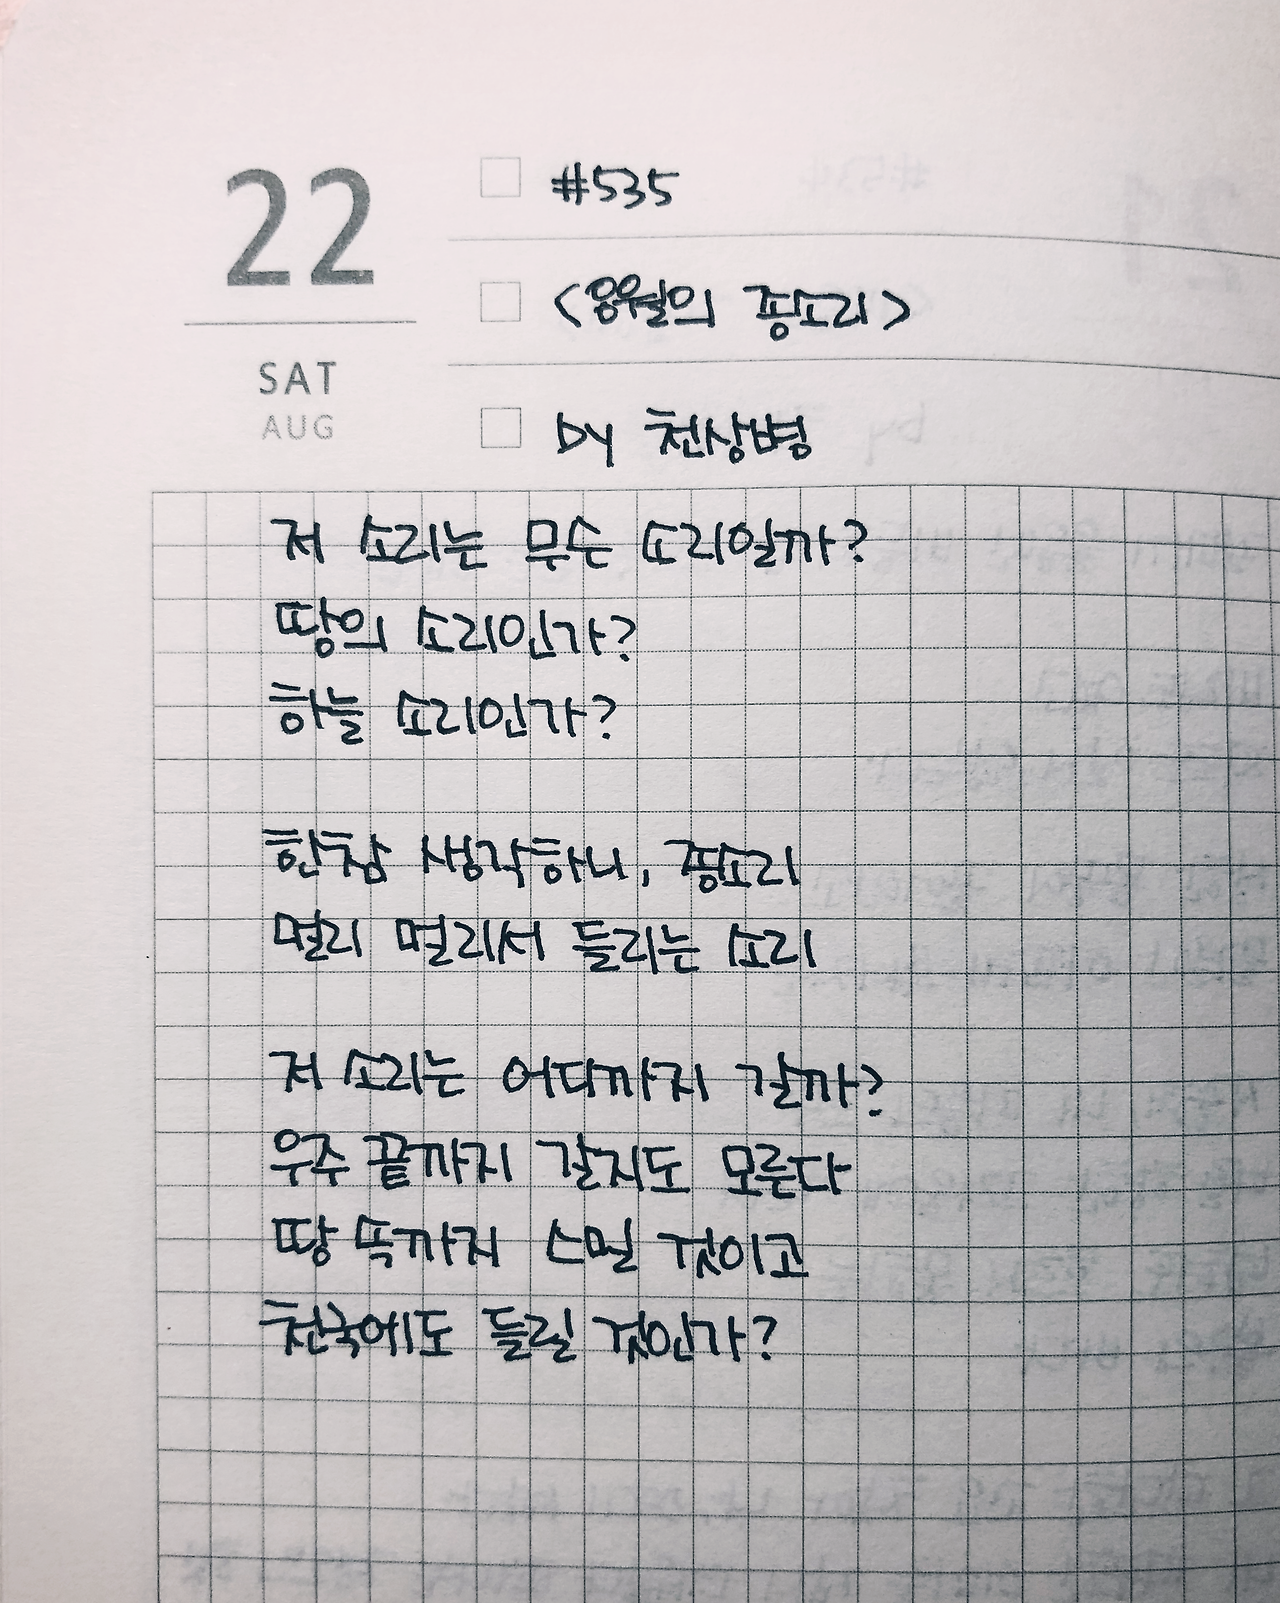 22
SAT
AUG
#535
<8월의 종소리>
by 천상병
저 소리는 무슨 소리일까?
땅의 소리인가?
하늘 소리인가?
한참 생각하니, 종소리
멀리 멀리서 들리는 소리
저 소리는 어디까지 갈까?
우주 끝까지 갈지도 모른다
땅 속까지 스밀 것이고
천국에도 들릴 것인가?